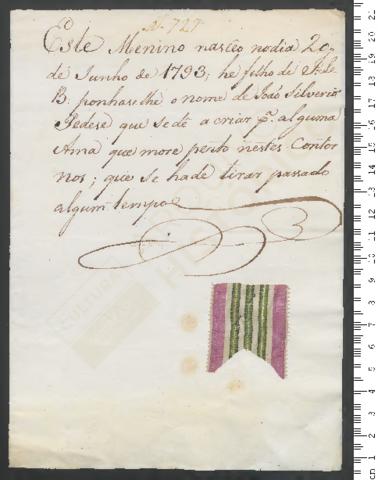 N. 727
Este Menino nasceo no dia 20
de Junho de 1793; he filho de A. e
B. ponhaselhe o nome de João Silverio
Pedese que se dê a criar p.ª alguma
Ama que more perto nestes Contor
nos; que se hade tirar passado
algum tempo